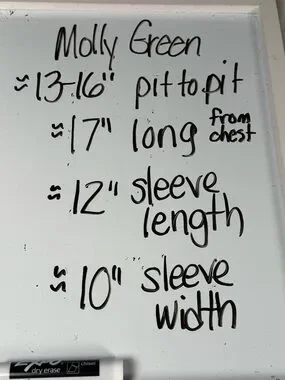 Molly Green
≈13-16" pit to pit
≈17" long from chest
≈12" sleeve length
≈10" sleeve width
EXPO
dry erase chisel